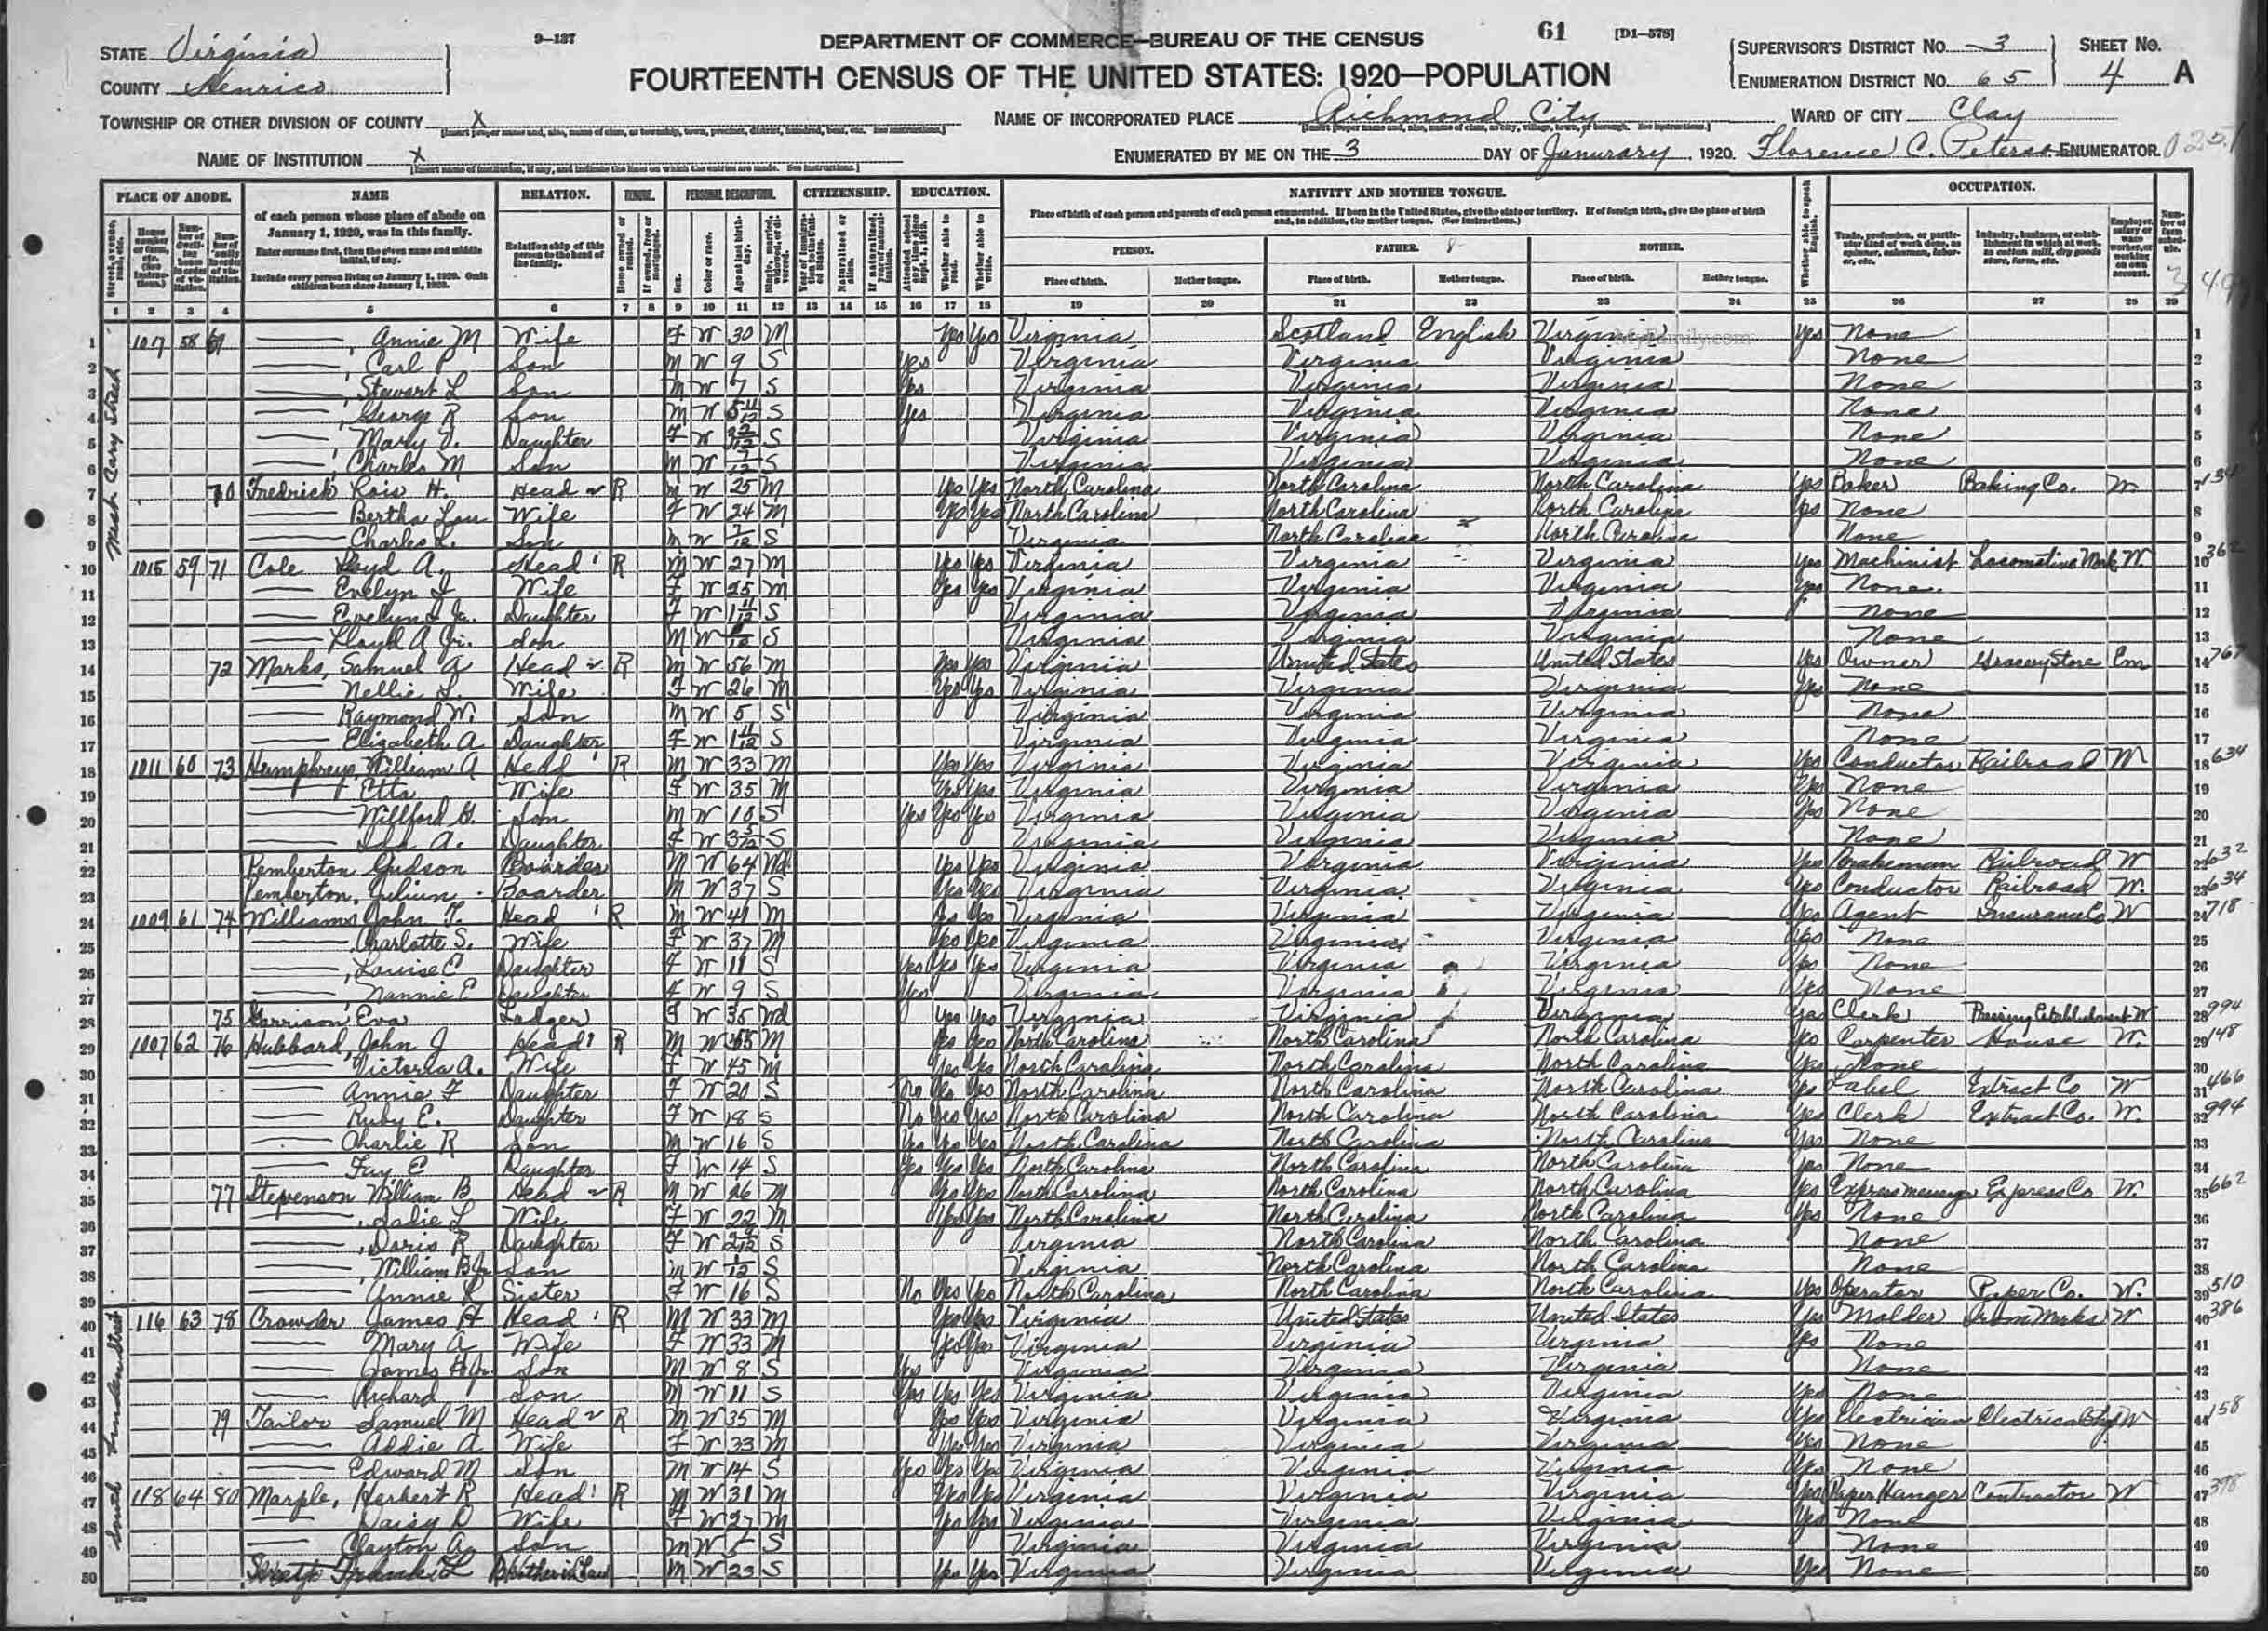 9-137
DEPARTMENT OF COMMERCE—BUREAU OF THE CENSUS
61 [D1-578]
STATE Virginia
COUNTY Henrico
FOURTEENTH CENSUS OF THE UNITED STATES: 1920—POPULATION
SUPERVISOR'S DISTRICT NO. 3 SHEET NO.
ENUMERATION DISTRICT NO. 65 4 A
TOWNSHIP OR OTHER DIVISION OF COUNTY X NAME OF INCORPORATED PLACE Richmond City WARD OF CITY Clay
NAME OF INSTITUTION X ENUMERATED BY ME ON THE 3 DAY OF Janurary, 1920. Florence C. ENUMERATOR
PLACE OF ABODE. NAME RELATION. TENURE. PERSONAL DESCRIPTION. CITIZENSHIP. EDUCATION. NATIVITY AND MOTHER TONGUE. OCCUPATION.
of each person whose place of abode on January 1, 1920, was in this family.
Enter surname first, then the given name and middle initial, if any.
Include every person living on January 1, 1920. Omit children born since January 1, 1920.
Relationship of this person to the head of the family.
Place of birth of each person and parents of each person enumerated. If born in the United States, give the state or territory. If of foreign birth, give the place of birth and, in addition, the mother tongue. (See Instructions.)
PERSON. FATHER. MOTHER.
Place of birth. Mother tongue. Place of birth. Mother tongue. Place of birth. Mother tongue.
1 2 3 4 5 6 7 8 9 10 11 12 13 14 15 16 17 18 19 20 21 22 23 24 25 26 27 28 29
West Cary Street
1 1017 58 69 ——, Annie M Wife F W 30 M Yes Yes Virginia Scotland English Virginia Yes None 1
MyFamily.com
2 ——, Carl P Son M W 9 S Yes Virginia Virginia Virginia None 2
3 ——, Stewart L Son M W 7 S Yes Virginia Virginia Virginia None 3
4 ——, George R Son M W 5 11/12 S Yes Virginia Virginia Virginia None 4
5 ——, Mary V. Daughter F W 3 2/12 S Virginia Virginia Virginia None 5
6 ——, Charles M Son M W 7/12 S Virginia Virginia Virginia None 6
7 70 Fredrick Rois H. Head R M W 25 M Yes Yes North Carolina North Carolina North Carolina Yes Baker Baking Co. W 7
8 —— Bertha Lou Wife F W 24 M Yes Yes North Carolina North Carolina North Carolina Yes None 8
9 —— Charles L. Son M W 7/12 S Virginia North Carolina North Carolina None 9
10 1015 59 71 Cole Loyd A. Head R M W 27 M Yes Yes Virginia Virginia Virginia Yes Machinist Locomotive Work W. 10 362
11 —— Evelyn I Wife F W 25 M Yes Yes Virginia Virginia Virginia Yes None. 11
12 —— Evelyn I Ja. Daughter F W 1 11/12 S Virginia Virginia Virginia None 12
13 —— Lloyd A Jr. Son M W S Virginia Virginia Virginia None 13
14 72 Marks, Samuel A Head R M W 56 M Yes Yes Virginia United States United States Yes Owner Grocery Store Em 14 767
15 —— Nellie L. Wife F W 26 M Yes Yes Virginia Virginia Virginia Yes None 15
16 —— Raymond W. Son M W 5 S Virginia Virginia Virginia None 16
17 —— Elizabeth A Daughter F W 1 11/12 S Virginia Virginia Virginia None 17
18 1011 60 73 Humphreys, William A Head R M W 33 M Yes Yes Virginia Virginia Virginia Yes Conductor Railroad W 18 634
19 —— Etta Wife F W 35 M Yes Yes Virginia Virginia Virginia Yes None 19
20 —— Willford G. Son M W 10 S Yes Yes Yes Virginia Virginia Virginia Yes None 20
21 —— Ida A. Daughter F W 3 5/12 S Virginia Virginia Virginia None 21
22 Pemberton Judson Boarder M W 64 Wd Yes Yes Virginia Virginia Virginia Yes Brakeman Railroad W 22 632
23 Pemberton, Julian Boarder M W 37 S Yes Yes Virginia Virginia Virginia Yes Conductor Railroad W. 23 634
24 1009 61 74 Williams John T. Head R M W 41 M Yes Yes Virginia Virginia Virginia Yes Agent Insurance Co W 24 718
25 —— Charlotte S. Wife F W 37 M Yes Yes Virginia Virginia Virginia Yes None 25
26 ——, Louise C Daughter F W 11 S Yes Yes Yes Virginia Virginia Virginia Yes None 26
27 —— Nannie E Daughter F W 9 S Yes Virginia Virginia Virginia Yes None 27
28 75 Garrison Eva Lodger F W 35 Wd Yes Yes Virginia Virginia Virginia Yes Clerk Pressing Establishment W 28 994
29 1007 62 76 Hubbard, John J Head R M W 55 M Yes Yes North Carolina North Carolina North Carolina Yes Carpenter House W. 29 148
30 —— Victoria A. Wife F W 45 M Yes Yes North Carolina North Carolina North Carolina Yes None 30
31 —— Annie F Daughter F W 20 S No Yes Yes North Carolina North Carolina North Carolina Yes Label Extract Co W 31 466
32 —— Ruby E. Daughter F W 18 S No Yes Yes North Carolina North Carolina North Carolina Yes Clerk Extract Co. W. 32 994
33 —— Charlie R Son M W 16 S Yes Yes Yes North Carolina North Carolina North Carolina Yes None 33
34 —— Fay E Daughter F W 14 S Yes Yes Yes North Carolina North Carolina North Carolina Yes None 34
35 77 Stevenson William B Head R M W 26 M Yes Yes North Carolina North Carolina North Carolina Yes Express messenger Express Co W. 35 662
36 ——, Sadie L Wife F W 22 M Yes Yes North Carolina North Carolina North Carolina Yes None 36
37 ——, Doris R Daughter F W S Virginia North Carolina North Carolina None 37
38 ——, William B Jr Son M W 1/12 S Virginia North Carolina North Carolina None 38
39 —— Annie L Sister F W 16 S No Yes Yes North Carolina North Carolina North Carolina Yes Operator Paper Co. W. 39 510
South Linden Street
40 116 63 78 Crowder James H Head R M W 33 M Yes Yes Virginia United States United States Yes Molder Iron Works W 40 386
41 —— Mary A Wife F W 33 M Yes Yes Virginia Virginia Virginia Yes None 41
42 —— James H Jr. Son M W 8 S Yes Virginia Virginia Virginia None 42
43 —— Richard Son M W 11 S Yes Yes Yes Virginia Virginia Virginia Yes None 43
44 79 Tailor Samuel M Head R M W 35 M Yes Yes Virginia Virginia Virginia Yes Electrician Electrical W 44 158
45 —— Addie A Wife F W 33 M Yes Yes Virginia Virginia Virginia Yes None 45
46 —— Edward M Son M W 14 S Yes Yes Yes Virginia Virginia Virginia Yes None 46
47 118 64 80 Marple, Herbert R Head R M W 31 M Yes Yes Virginia Virginia Virginia Yes Paper Hanger Contractor W 47 398
48 —— Daisy D Wife F W 27 M Yes Yes Virginia Virginia Virginia Yes None 48
49 —— Clayton A. Son M W 5 S Virginia Virginia Virginia None 49
50 Frank L Brother in Law M W 23 S Yes Yes Virginia Virginia Virginia Yes None 50